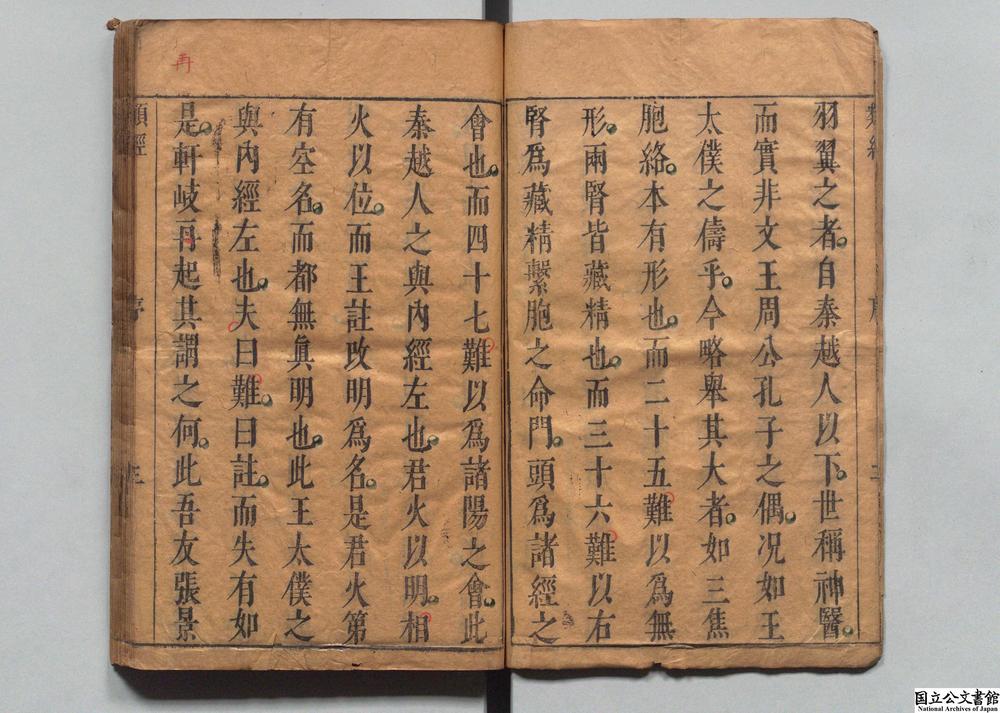 羽翼之者自秦越人以下世稱神醫
而實非文王周公孔子之偶況如王
太僕之儔乎今略舉其大者如三焦
胞絡本有形也而二十五難以為無
形兩腎皆藏精也而三十六難以右
腎為藏精繫胞之命門頭為諸經之
會也而四十七難以為諸陽之會此
秦越人之與內經左也君火以明相
火以位而王註改明為名是君火第
有空名而都無眞明也此王太僕之
與內經左也夫曰難曰註而失有如
是軒岐再起其謂之何此吾友張景
類經
序
三
再
国立公文書館
National Archives of Japan